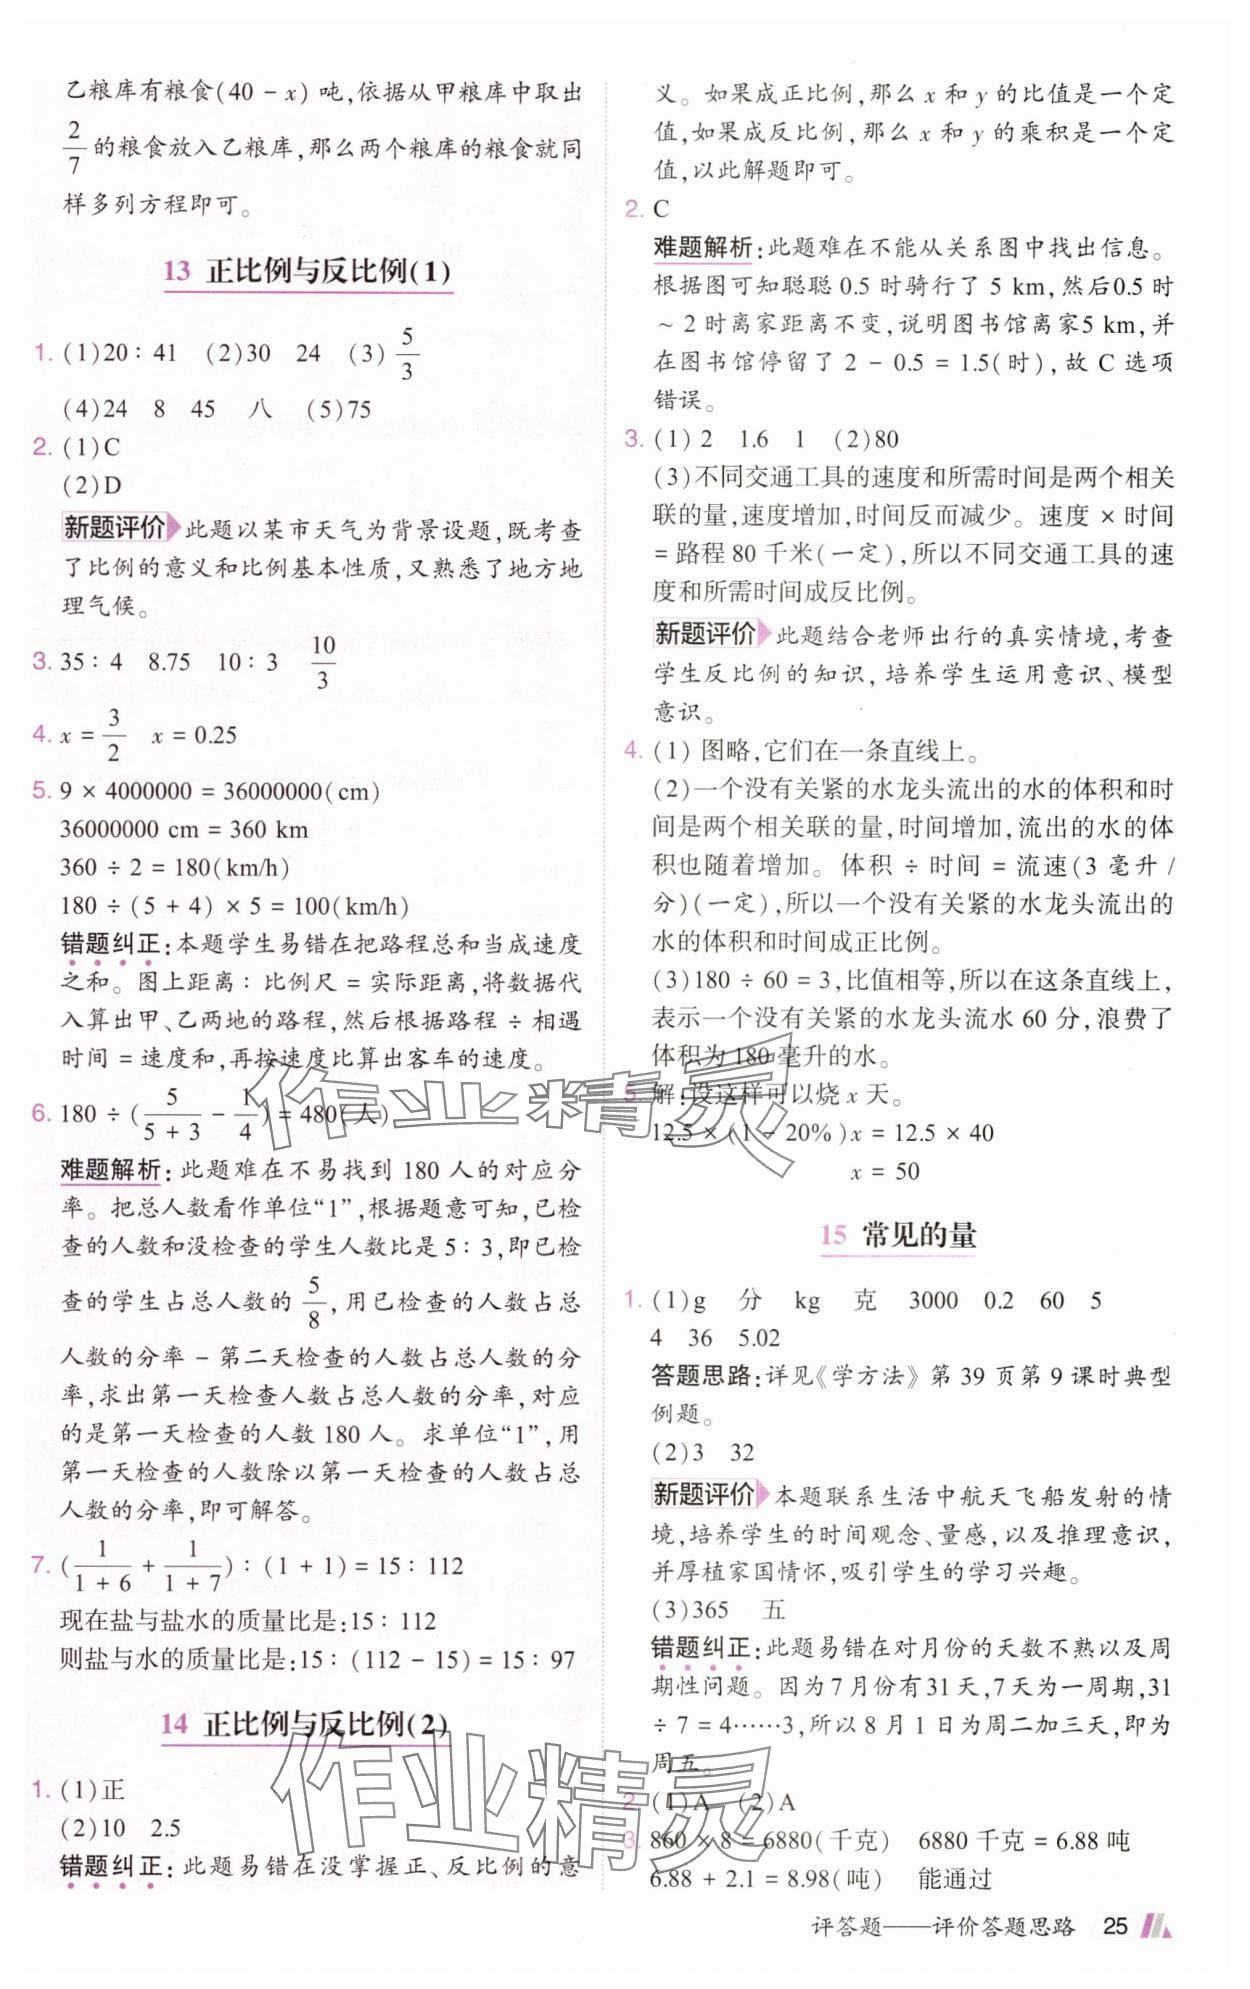 乙粮库有粮食(40 - x) 吨,依据从甲粮库中取出
2/7 的粮食放入乙粮库,那么两个粮库的粮食就同
样多列方程即可。
13 正比例与反比例(1)
1. (1)20∶41 (2)30 24 (3) 5/3
(4)24 8 45 八 (5)75
2. (1)C
(2)D
新题评价 此题以某市天气为背景设题,既考查
了比例的意义和比例基本性质,又熟悉了地方地
理气候。
3. 35∶4 8.75 10∶3 10/3
4. x = 3/2 x = 0.25
5. 9 × 4000000 = 36000000(cm)
36000000 cm = 360 km
360 ÷ 2 = 180(km/h)
180 ÷ (5 + 4) × 5 = 100(km/h)
错题纠正:本题学生易错在把路程总和当成速度
之和。图上距离∶比例尺 = 实际距离,将数据代
入算出甲、乙两地的路程,然后根据路程 ÷ 相遇
时间 = 速度和,再按速度比算出客车的速度。
6. 180 ÷ (5/(5 + 3) - 1/4) = 480(人)
难题解析:此题难在不易找到 180 人的对应分
率。把总人数看作单位“1”,根据题意可知,已检
查的人数和没检查的学生人数比是 5∶3,即已检
查的学生占总人数的 5/8,用已检查的人数占总
人数的分率 - 第二天检查的人数占总人数的分
率,求出第一天检查人数占总人数的分率,对应
的是第一天检查的人数 180 人。求单位“1”,用
第一天检查的人数除以第一天检查的人数占总
人数的分率,即可解答。
7. (1/(1 + 6) + 1/(1 + 7))∶(1 + 1) = 15∶112
现在盐与盐水的质量比是:15∶112
则盐与水的质量比是:15∶(112 - 15) = 15∶97
14 正比例与反比例(2)
1. (1)正
(2)10 2.5
错题纠正:此题易错在没掌握正、反比例的意
义。如果成正比例,那么 x 和 y 的比值是一个定
值,如果成反比例,那么 x 和 y 的乘积是一个定
值,以此解题即可。
2. C
难题解析:此题难在不能从关系图中找出信息。
根据图可知聪聪 0.5 时骑行了 5 km,然后0.5 时
~ 2 时离家距离不变,说明图书馆离家5 km,并
在图书馆停留了 2 - 0.5 = 1.5(时),故 C 选项
错误。
3. (1) 2 1.6 1 (2)80
(3)不同交通工具的速度和所需时间是两个相关
联的量,速度增加,时间反而减少。速度 × 时间
= 路程 80 千米(一定),所以不同交通工具的速
度和所需时间成反比例。
新题评价 此题结合老师出行的真实情境,考查
学生反比例的知识,培养学生运用意识、模型
意识。
4. (1) 图略,它们在一条直线上。
(2)一个没有关紧的水龙头流出的水的体积和时
间是两个相关联的量,时间增加,流出的水的体
积也随着增加。体积 ÷ 时间 = 流速(3 毫升 /
分)(一定),所以一个没有关紧的水龙头流出的
水的体积和时间成正比例。
(3)180 ÷ 60 = 3,比值相等,所以在这条直线上,
表示一个没有关紧的水龙头流水 60 分,浪费了
体积为 180 毫升的水。
5. 解:设这样可以烧 x 天。
12.5 × (1 - 20%)x = 12.5 × 40
x = 50
15 常见的量
1. (1)g 分 kg 克 3000 0.2 60 5
4 36 5.02
答题思路:详见《学方法》第 39 页第 9 课时典型
例题。
(2)3 32
新题评价 本题联系生活中航天飞船发射的情
境,培养学生的时间观念、量感,以及推理意识,
并厚植家国情怀,吸引学生的学习兴趣。
(3)365 五
错题纠正:此题易错在对月份的天数不熟以及周
期性问题。因为 7 月份有31 天,7 天为一周期,31
÷ 7 = 4……3,所以 8 月 1 日为周二加三天,即为
周五。
2. (1)A (2)A
3. 860 × 8 = 6880(千克) 6880 千克 = 6.88 吨
6.88 + 2.1 = 8.98(吨) 能通过
评答题——评价答题思路 25
作业精灵
作业精灵